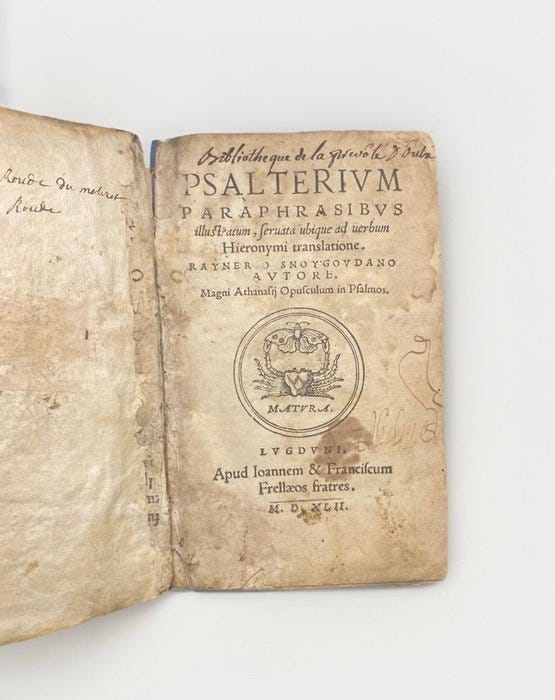 Roude du meleret
Roude
Bibliotheque de la prevôté D'Oulx
PSALTERIVM
PARAPHRASIBVS
illustratum, seruata ubique ad uerbum
Hieronymi translatione.
RAYNERIO SNOYGOVDANO
AVTORE.
Magni Athanasij Opusculum in Psalmos.
MATVRA.
LVGDVNI,
Apud Ioannem & Franciscum
Frellæos fratres.
M. D. XLII.